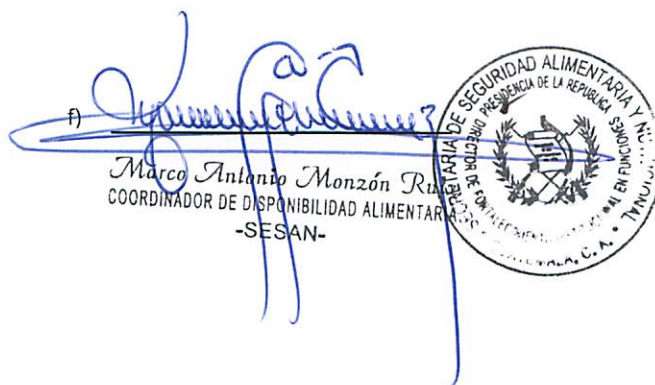 f)
Marco Antonio Monzón
COORDINADOR DE DISPONIBILIDAD ALIMENTARIA
-SESAN-
SECRETARIA DE SEGURIDAD ALIMENTARIA Y
PRESIDENCIA DE LA REPUBLICA
DIRECTOR DE FORTALECIMIENTO EN FUNCIONES
C. A.